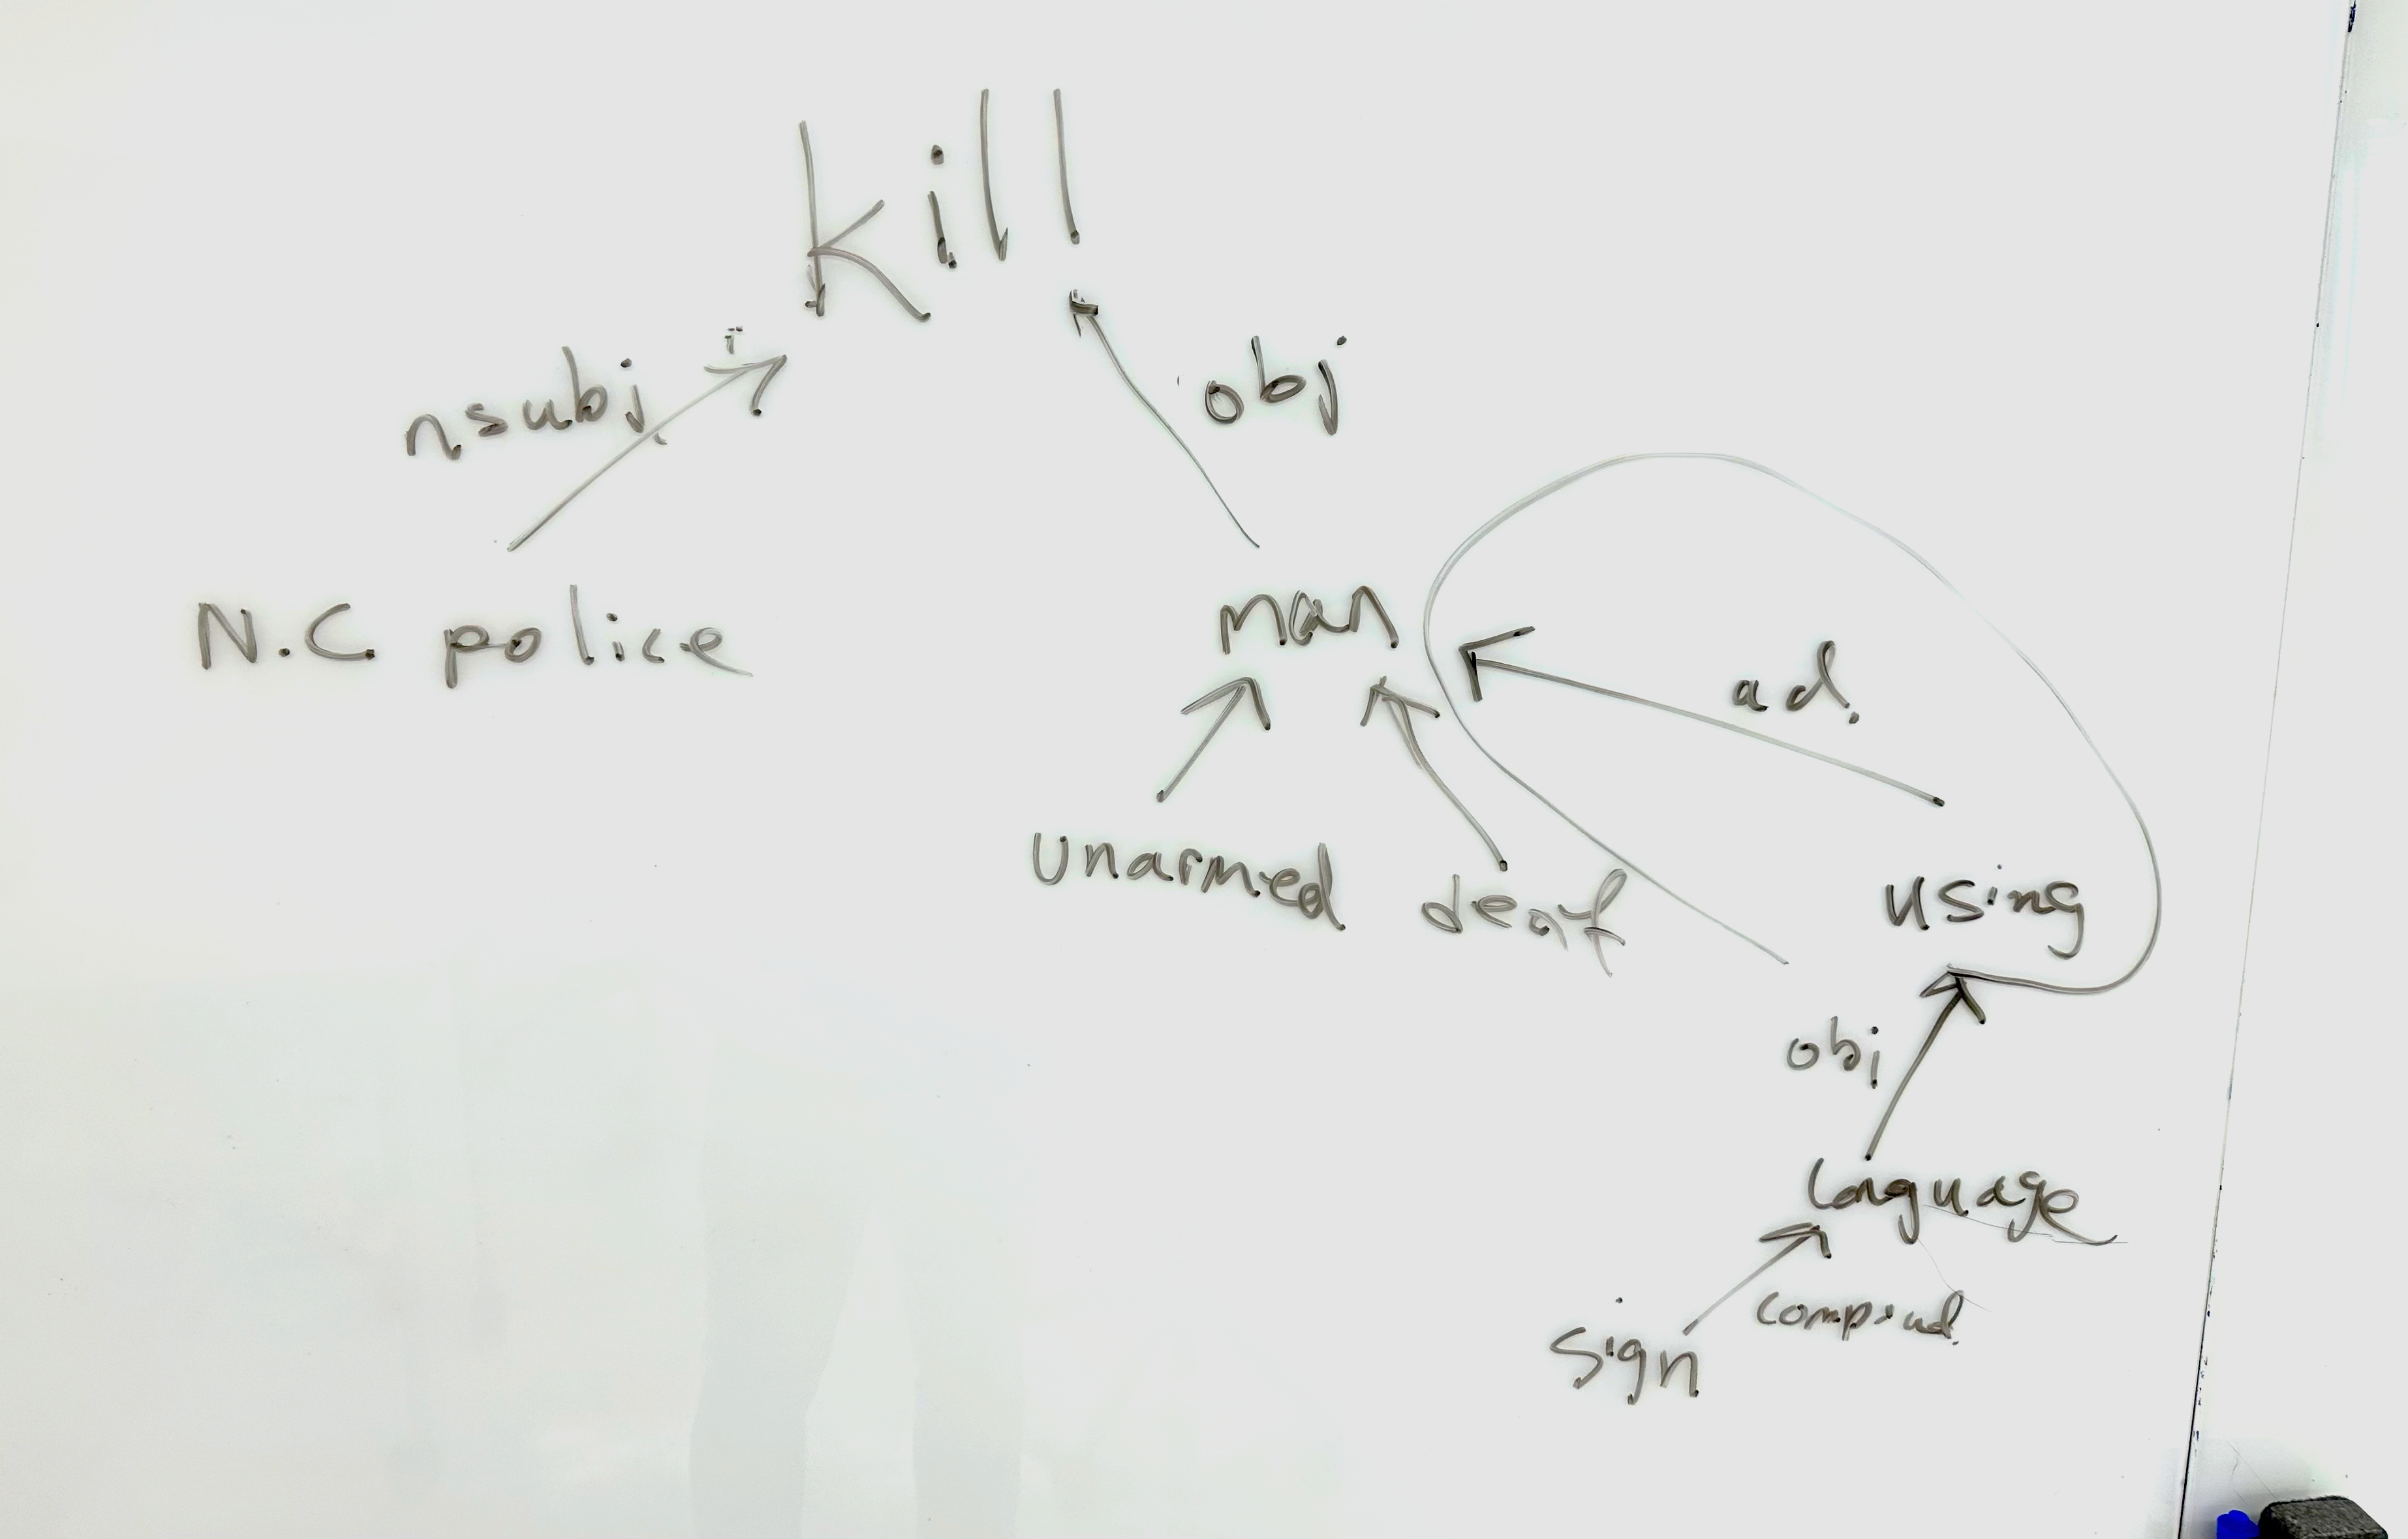 kill
nsubj
obj
N.C police
man
ad.
unarmed
deaf
using
obj
language
compound
sign